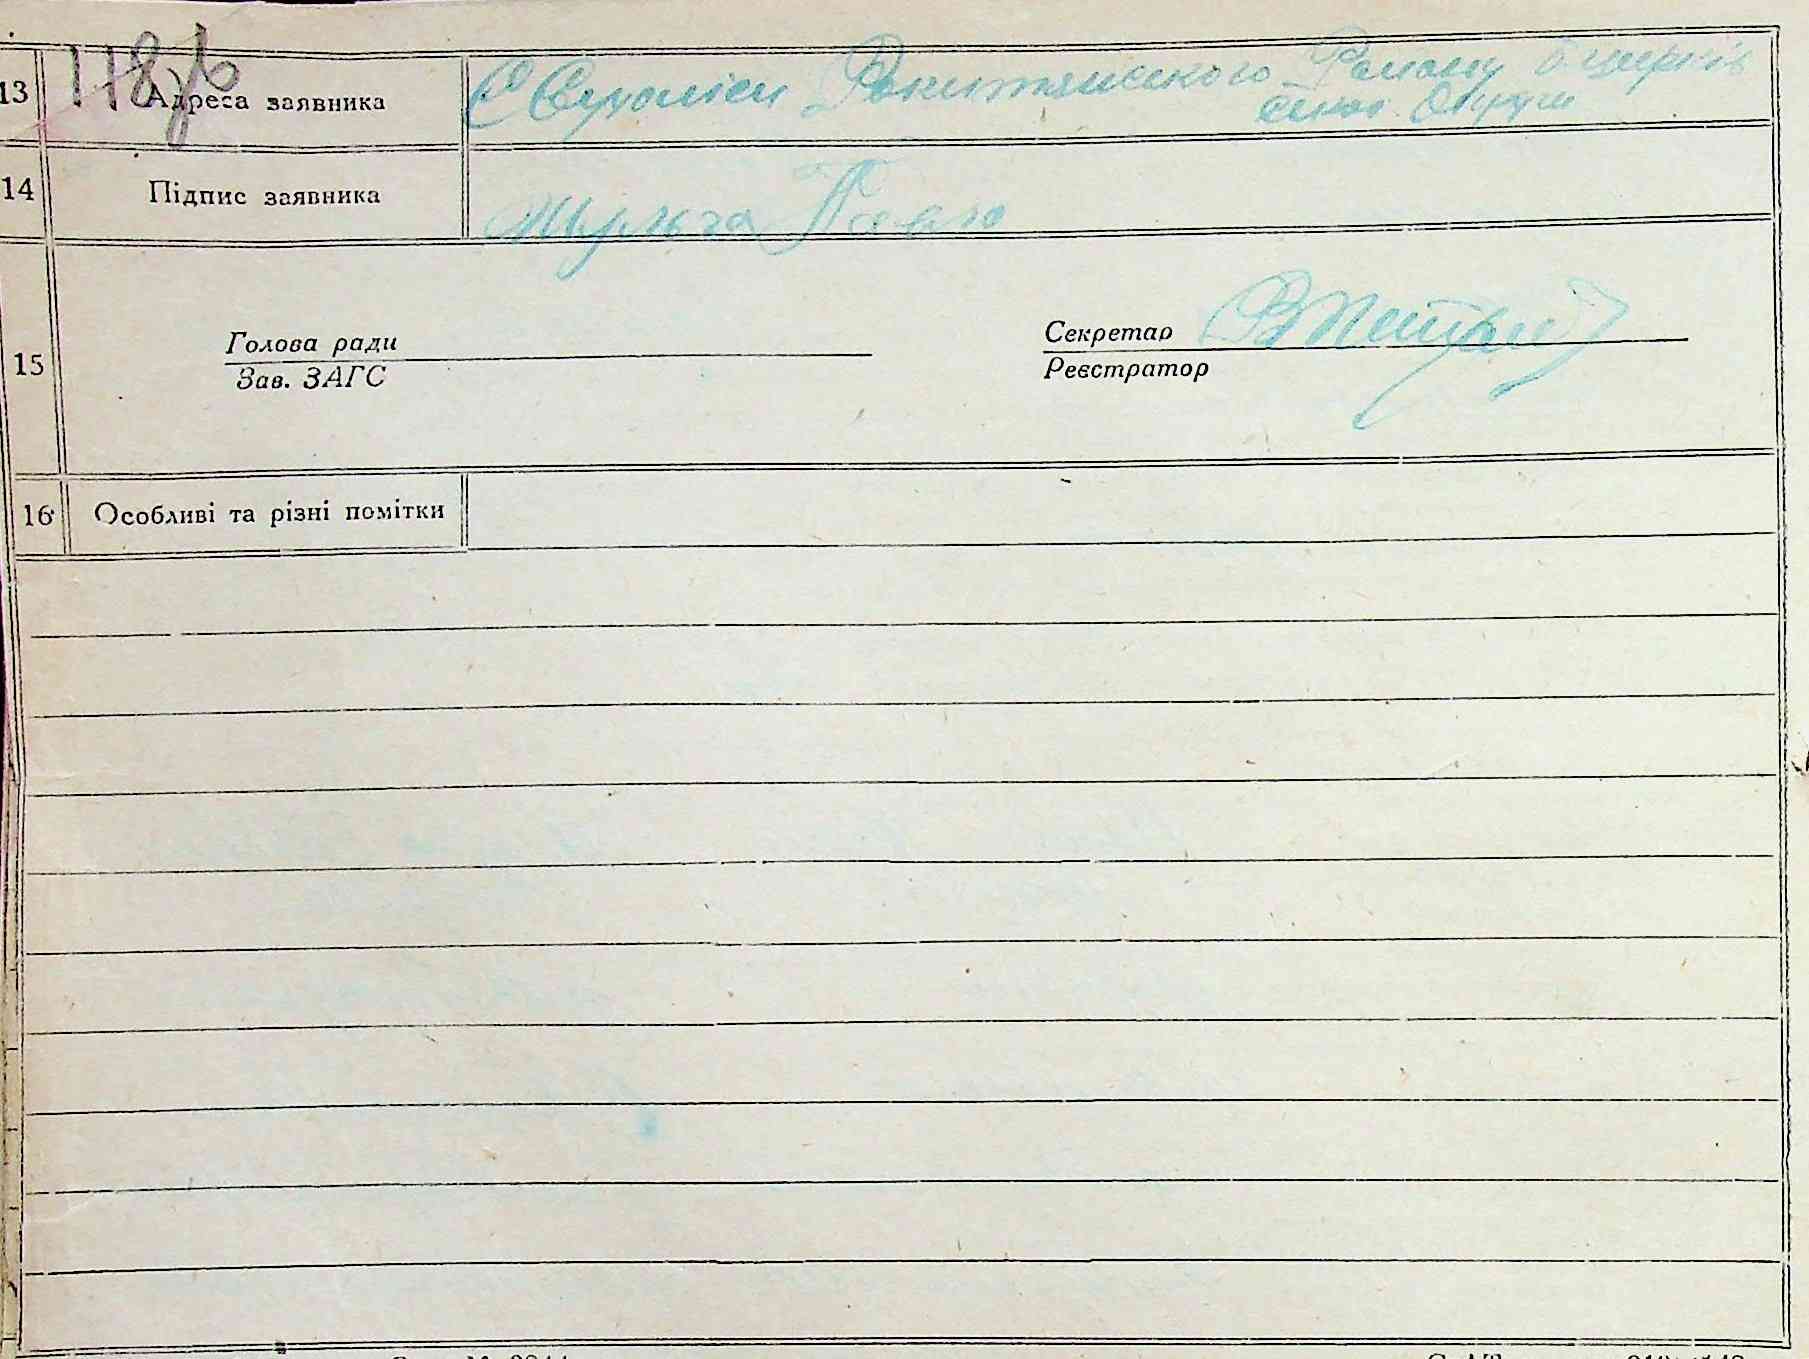 118
13 Адреса заявника С Сухоліси Рокитянського Району Б церків
ської Округи
14 Підпис заявника Шульга Павло
15 Голова ради Секретар
Зав. ЗАГС Реєстратор
16 Особливі та різні помітки